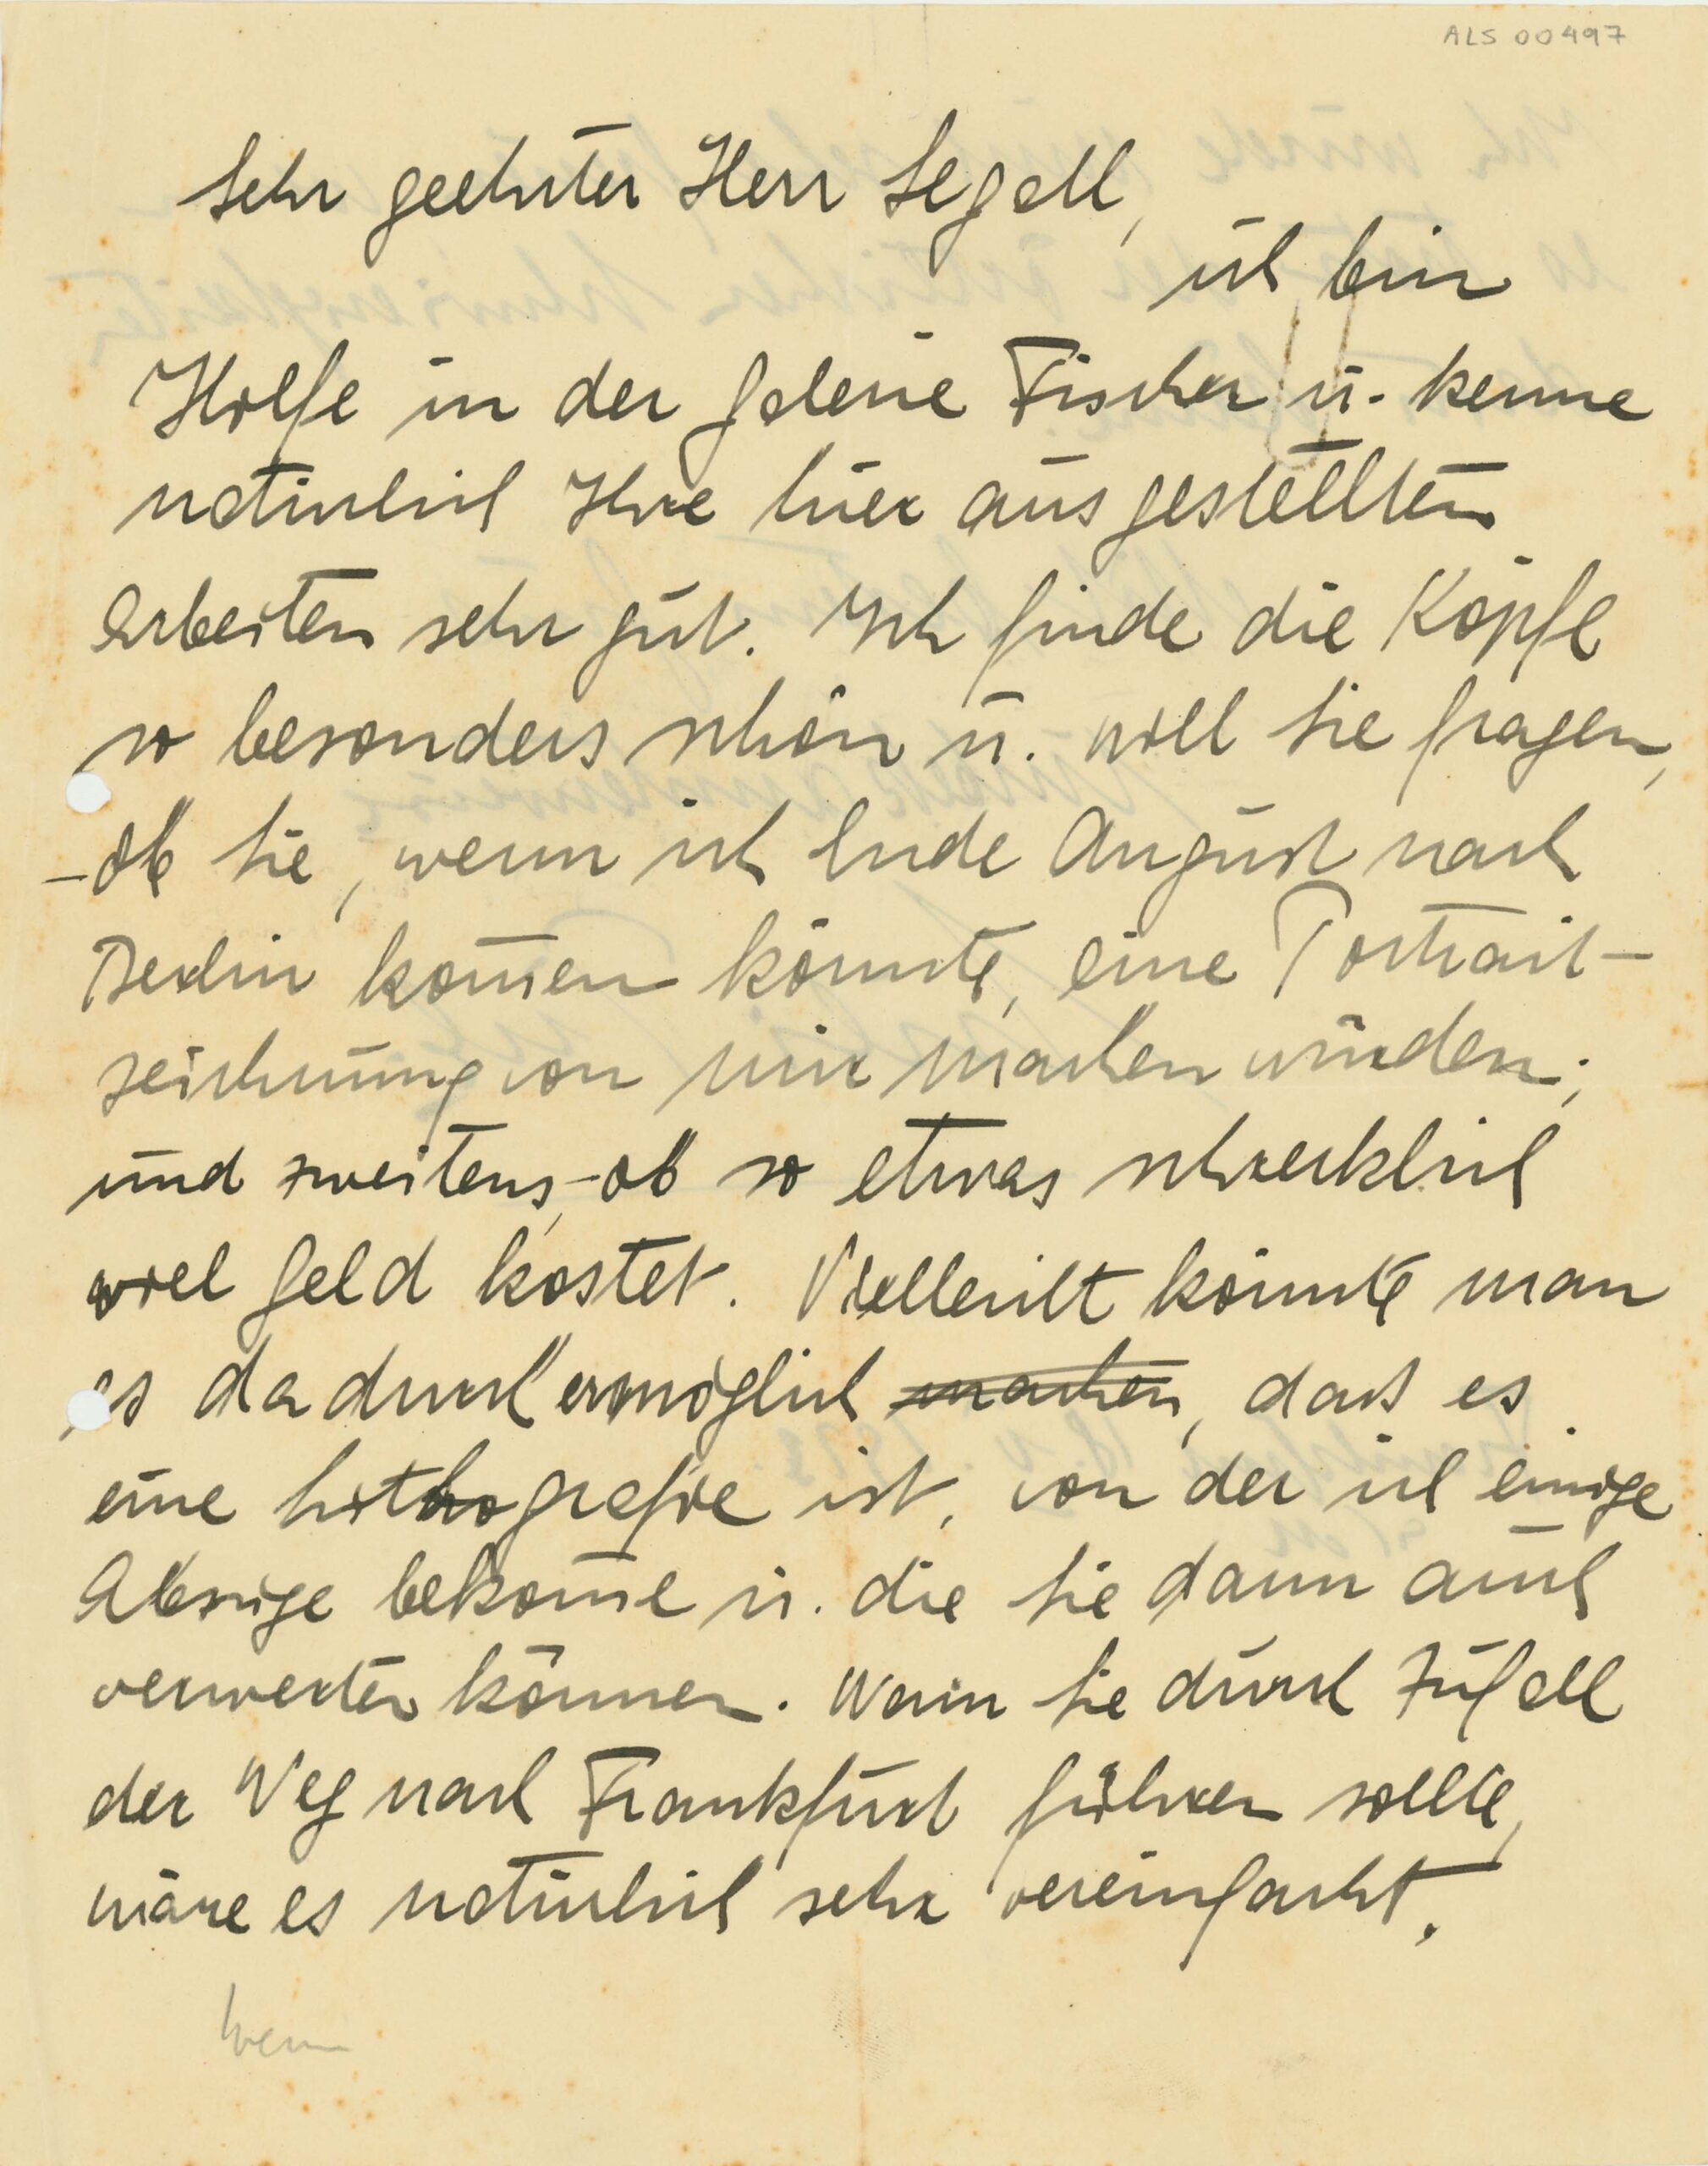 ALS 00497
Sehr geehrter Herr Segall,
ich bin
Hilfe in der Galerie Fischer u. kenne
natürlich Ihre hier ausgestellten
Arbeiten sehr gut. Ich finde die Köpfe
so besonders schön u. will Sie fragen,
-ob Sie, wenn ich Ende August nach
Berlin kom̅en könnte, eine Portrait-
zeichnung von mir machen würden;
und zweitens,-ob so etwas schrecklich
viel Geld kostet. Vielleicht könnte man
es dadurch ermöglich machen, dass es
eine Lithografie ist, von der ich einige
Abzüge bekom̅e u. die Sie dann auch
verwerten können. Wenn Sie durch Zufall
der Weg nach Frankfurt führen sollte,
wäre es natürlich sehr vereinfacht.
wenn